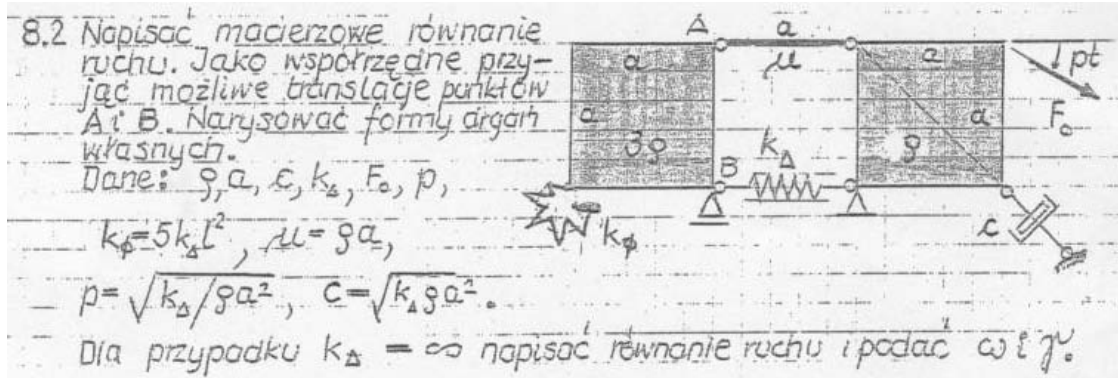 8.2 Napisać macierzowe równanie
ruchu. Jako współrzędne przy-
jąć możliwe translacje punktów
A i B. Narysować formy drgań
własnych.
Dane: ρ, a, c, k_Δ, F_o, p,
k_ϕ=5k_Δl², μ=ρa,
p=√k_Δ/ρa², C=√k_Δρa².
Dla przypadku k_Δ = ∞ napisać równanie ruchu i podać ω i γ.
A
a
μ
a
a
3ρ
B
k_ϕ
k_Δ
a
a
ρ
pt
F_o
c